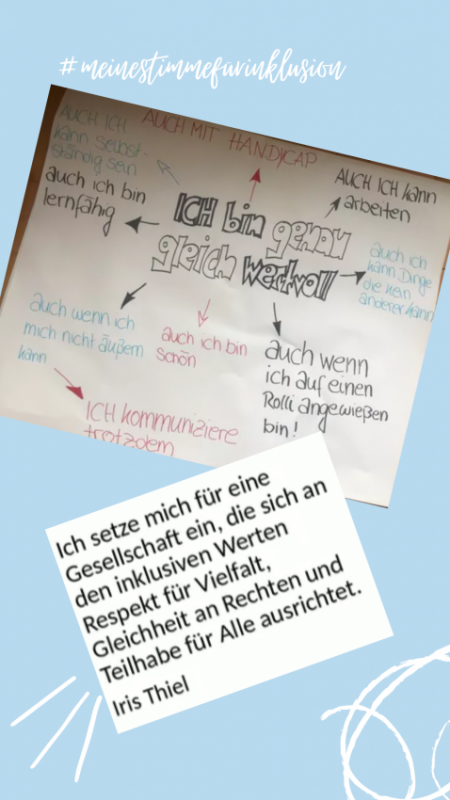 #meinestimmefürinklusion
AUCH MIT HANDICAP
AUCH ICH
kann selbst-
ständig sein
auch ich bin
lernfähig
AUCH ICH kann
arbeiten
ICH bin genau
gleich wertvoll
auch ich
kann Dinge
die kein
anderer kann
auch wenn ich
mich nicht äußern
kann
auch ich bin
schön
auch wenn
ich auf einen
Rolli angewießen
bin!
ICH kommuniziere
trotzdem
Ich setze mich für eine
Gesellschaft ein, die sich an
den inklusiven Werten
Respekt für Vielfalt,
Gleichheit an Rechten und
Teilhabe für Alle ausrichtet.
Iris Thiel